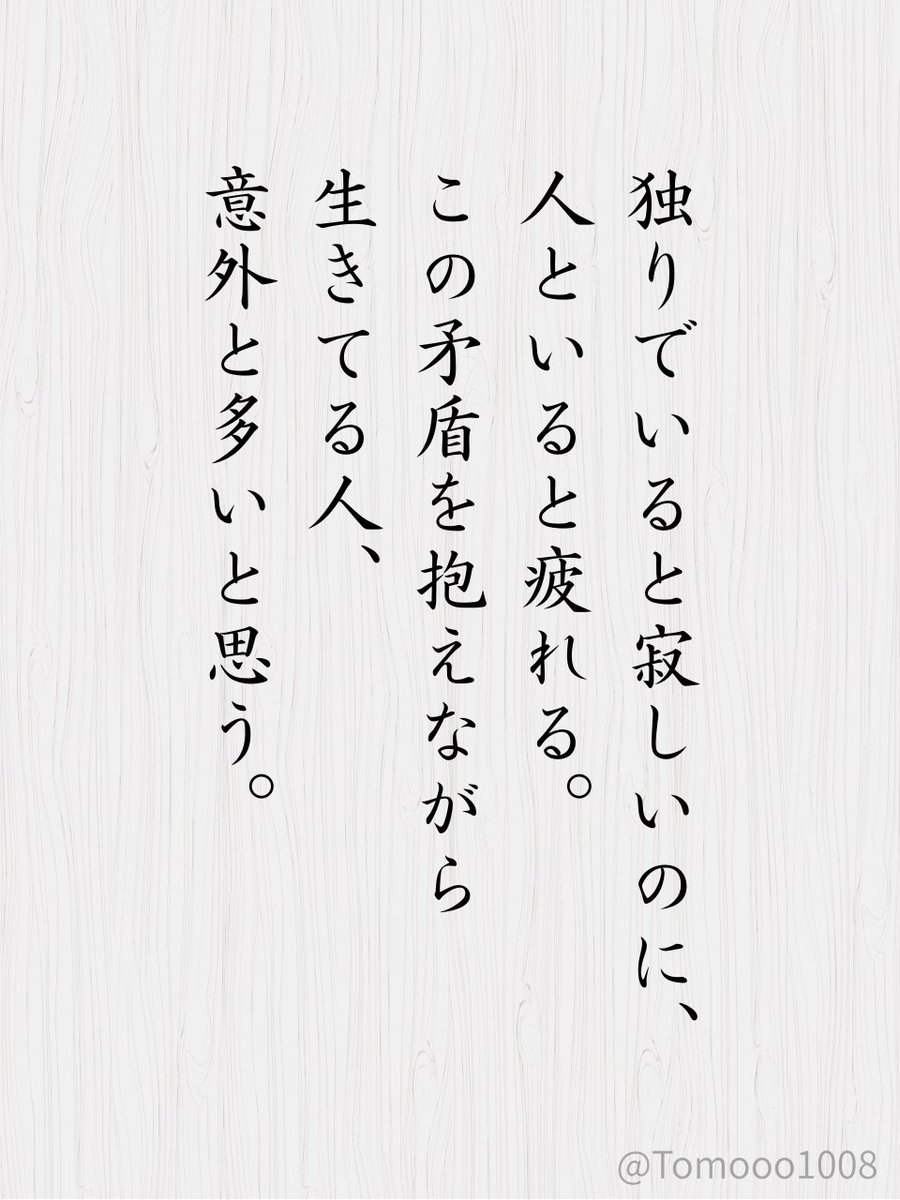 独りでいると寂しいのに、
人といると疲れる。
この矛盾を抱えながら
生きてる人、
意外と多いと思う。
@Tomooo1008